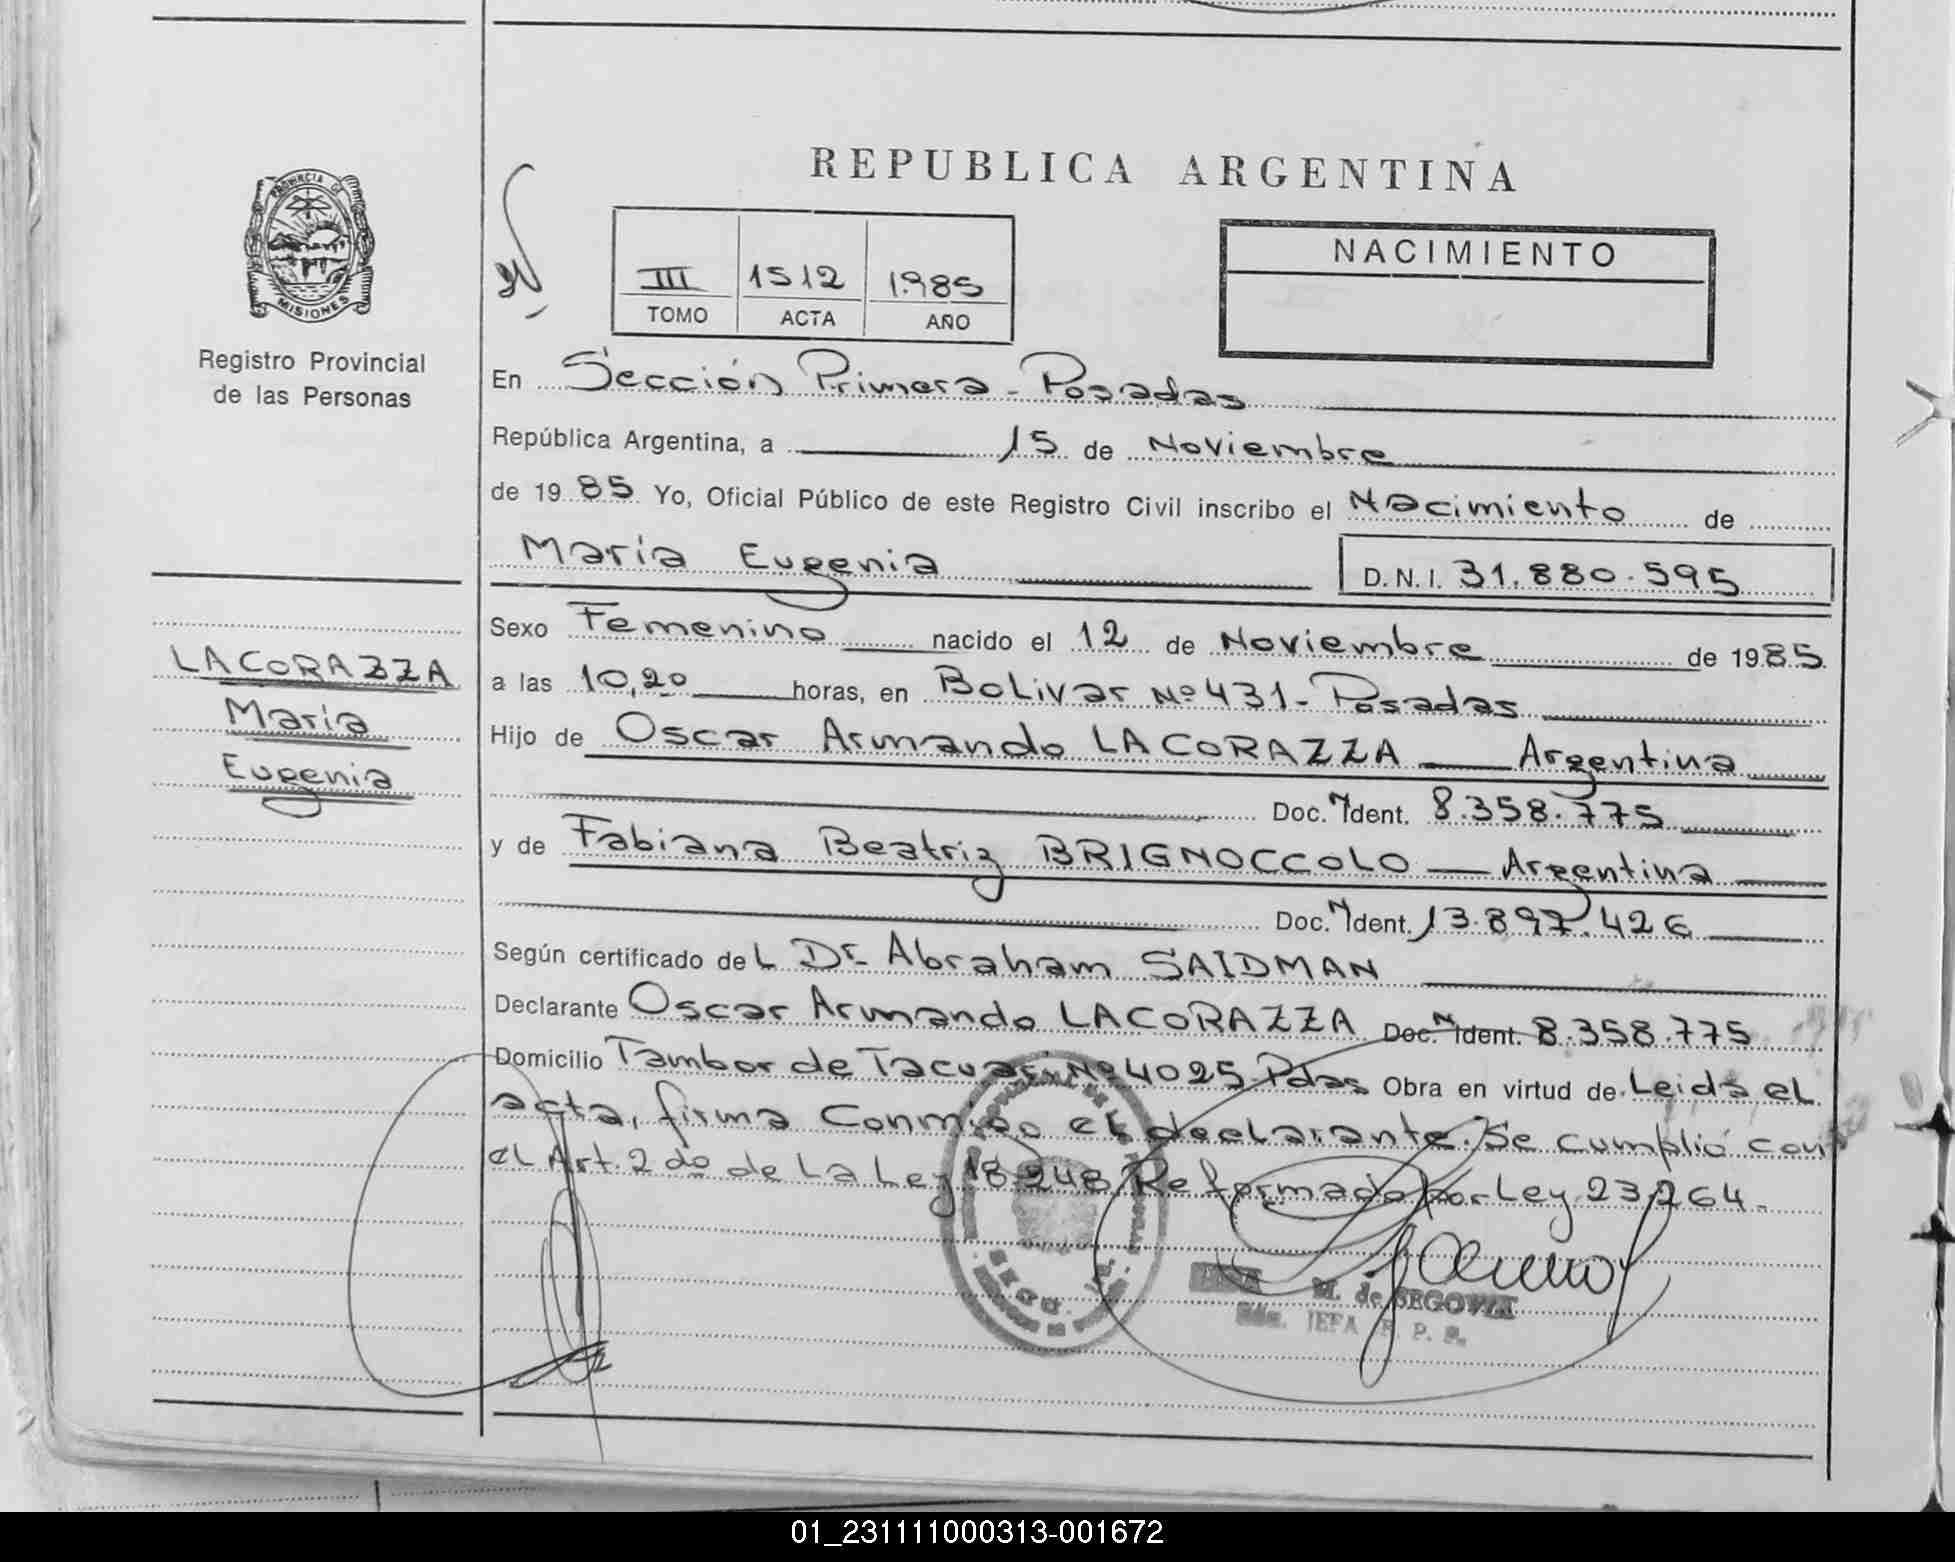 REPUBLICA ARGENTINA
PROVINCIA DE
MISIONES
Registro Provincial
de las Personas
III 1512 1985
TOMO ACTA AÑO
NACIMIENTO
En Sección Primera - Posadas
República Argentina, a 15 de Noviembre
de 1985 Yo, Oficial Público de este Registro Civil inscribo el Nacimiento de
María Eugenia D.N.I. 31.880.595
LACORAZZA
María
Eugenia
Sexo Femenino nacido el 12 de Noviembre de 1985
a las 10,20 horas, en Bolivar Nº 431 - Posadas
Hijo de Oscar Armando LACORAZZA Argentina
Doc. Ident. 8.358.775
y de Fabiana Beatriz BRIGNOCCOLO Argentina
Doc. Ident. 13.897.426
Según certificado del Dr. Abraham SAIDMAN
Declarante Oscar Armando LACORAZZA Doc. Ident. 8.358.775
Domicilio Tambor de Tacuari Nº 4025 Pdas Obra en virtud de Leida el
acta, firma conmigo el declarante. Se cumplió con
el Art. 2do de La Ley 18.248 Reformado por Ley 23.264.
M. de SEGOVIA
JEFA R. P. P.
01_231111000313-001672